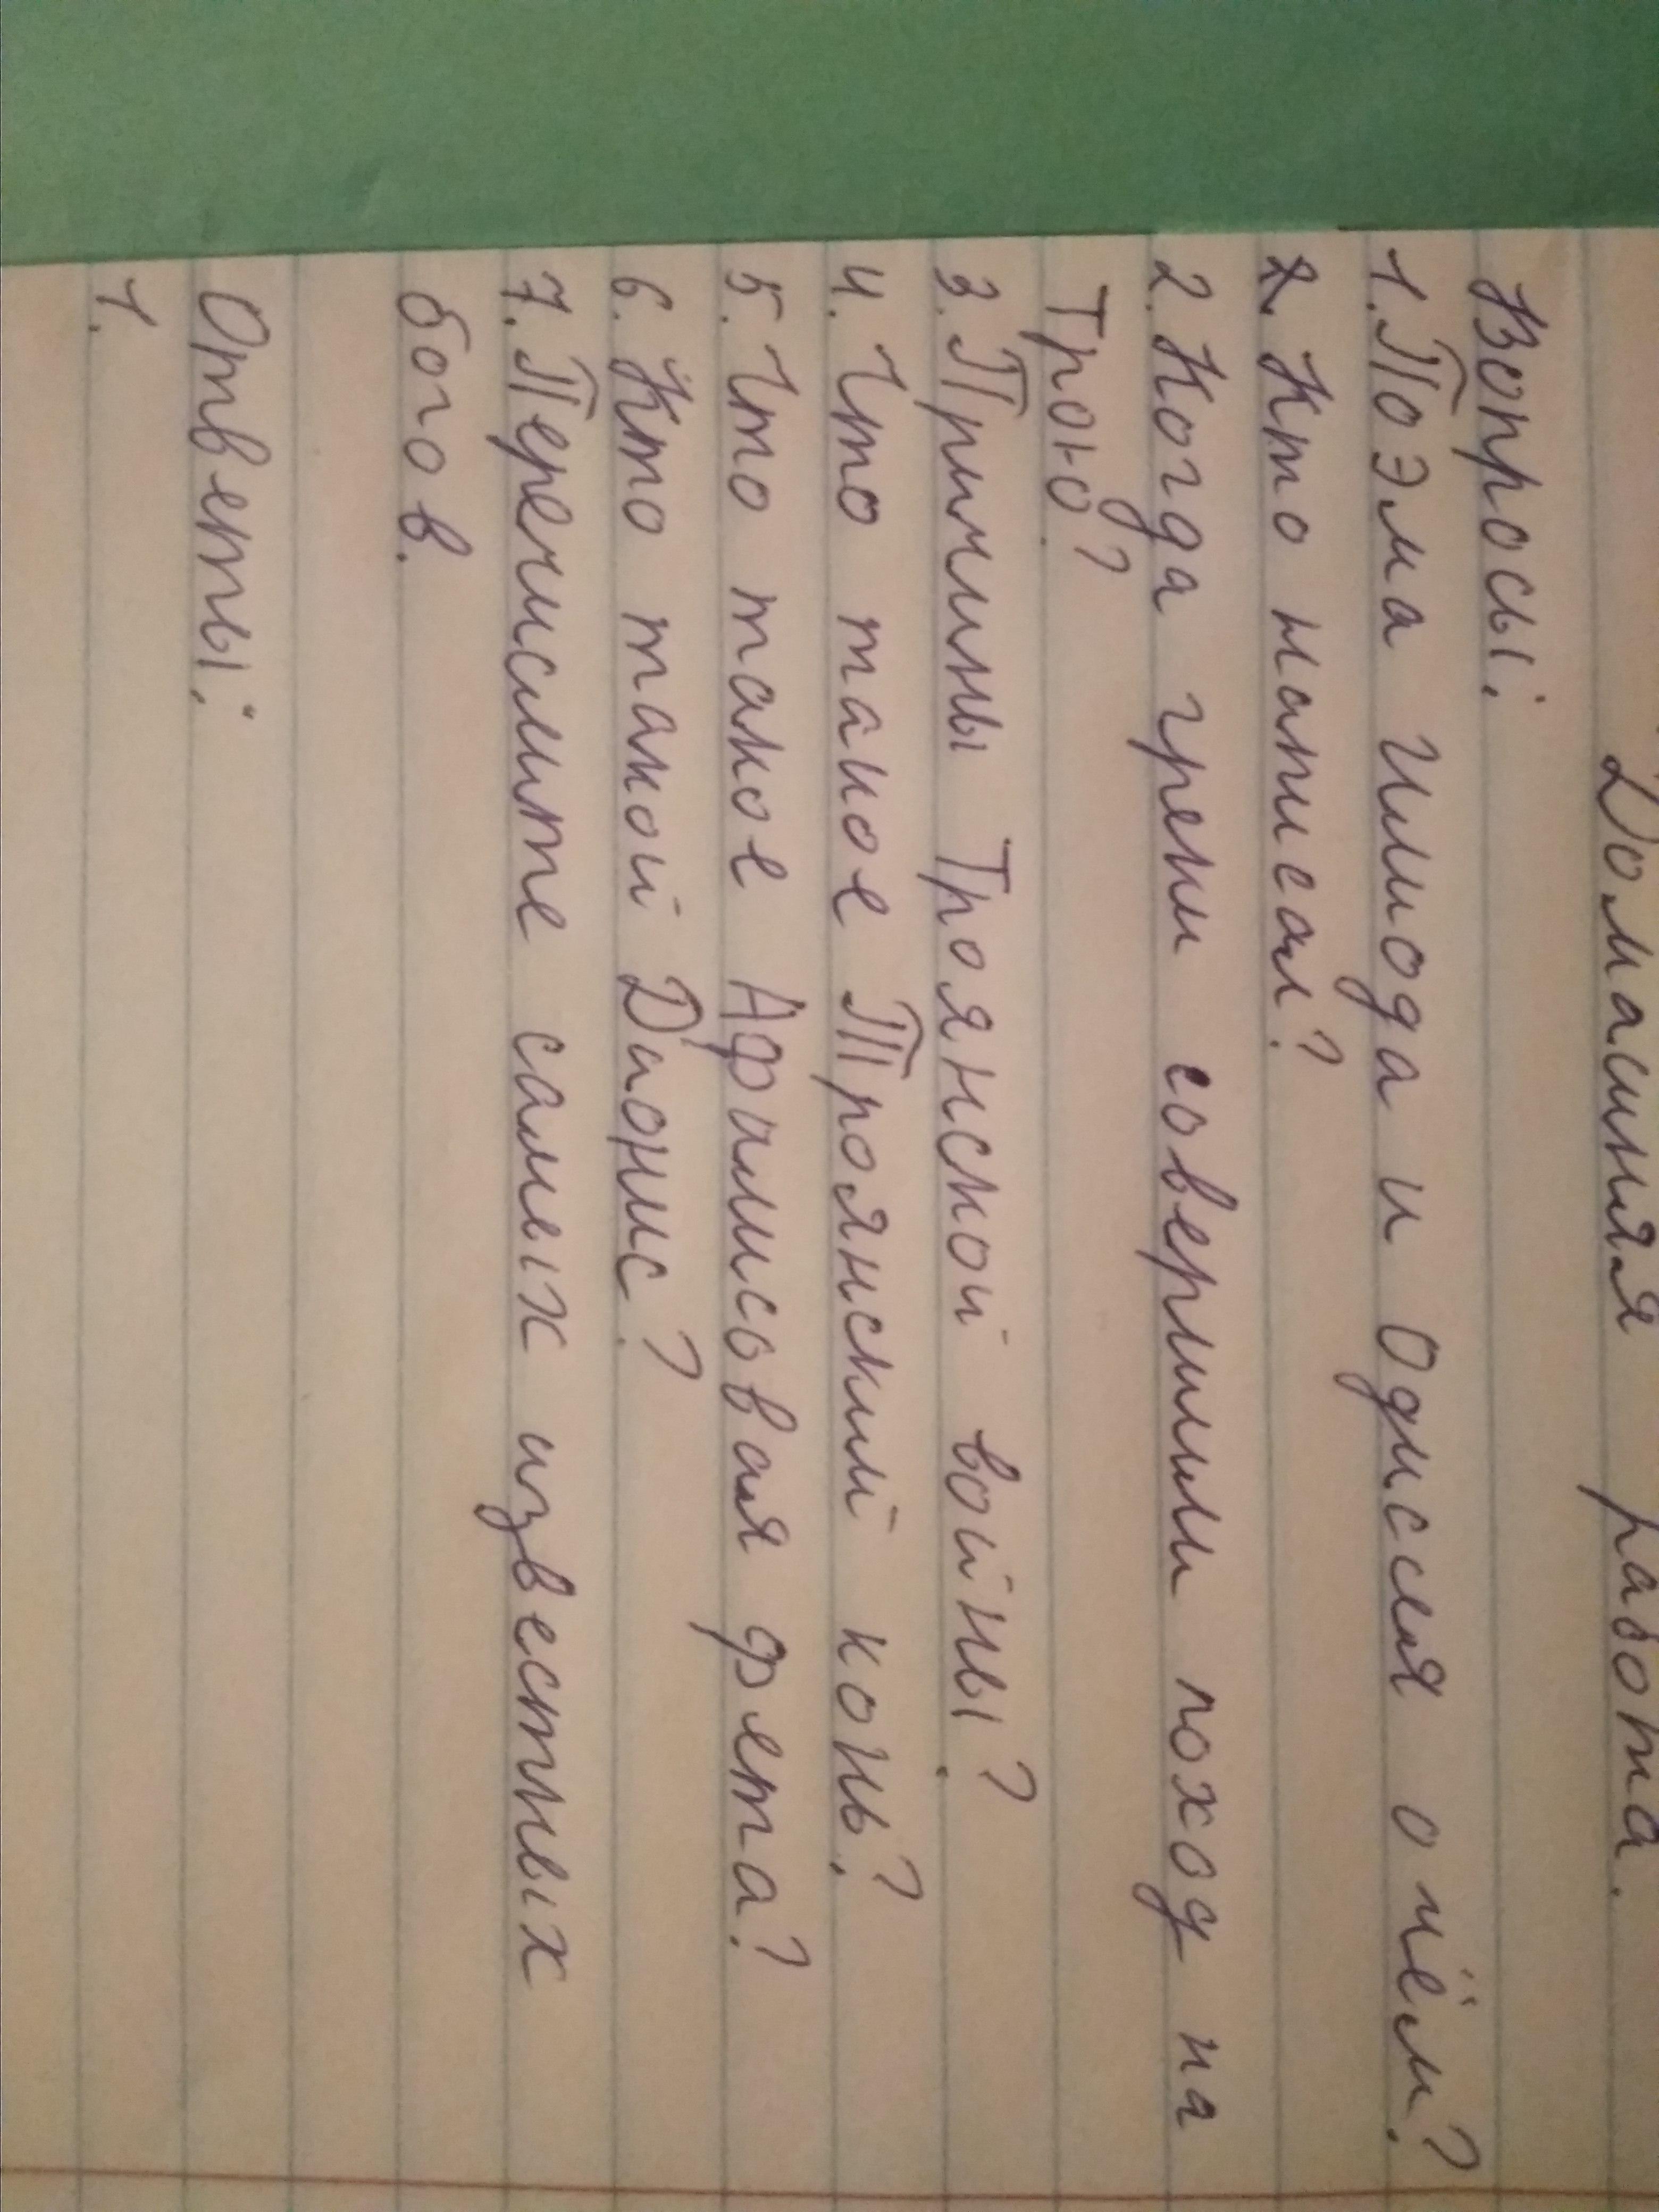 Домашняя работа.
Вопросы:
1. Поэма Илиода и Одиссея о чём?
2. Кто написал?
2. Когда греки совершили поход на
Трою?
3. Причины Троянской войны?
4. Что такое Троянский конь?
5. Что такое Афалисовая фета?
6. Кто такой Дионис?
7. Перечислите самых известных
богов.
Ответы:
1.